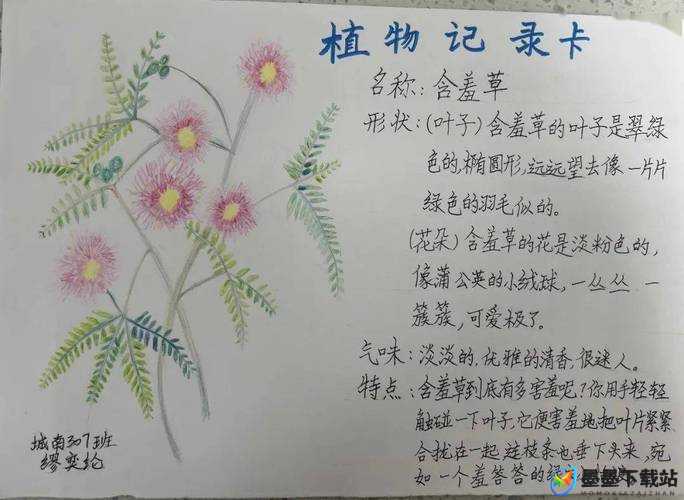 植物记录卡
名称：含羞草
形状：(叶子)含羞草的叶子是翠绿
色的，椭圆形，远远望去像一片片
绿色的羽毛似的。
(花朵)含羞草的花是淡粉色的，
像蒲公英的小绒球，一丛丛一
簇簇，可爱极了。
气味：淡淡的，优雅的清香，很迷人。
特点：含羞草到底有多害羞呢？你用手轻轻
触碰一下叶子，它便害羞地把叶片紧紧
合拢在一起，连枝条也垂下头来，宛
如一个羞答答的绿
城南307班
缪奕纶
墨墨下载站
MOMOXIAZAIZHAN